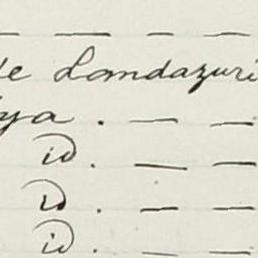 — — — —
de Landazuri
ya . — —
id . — —
id . — —
id . — —